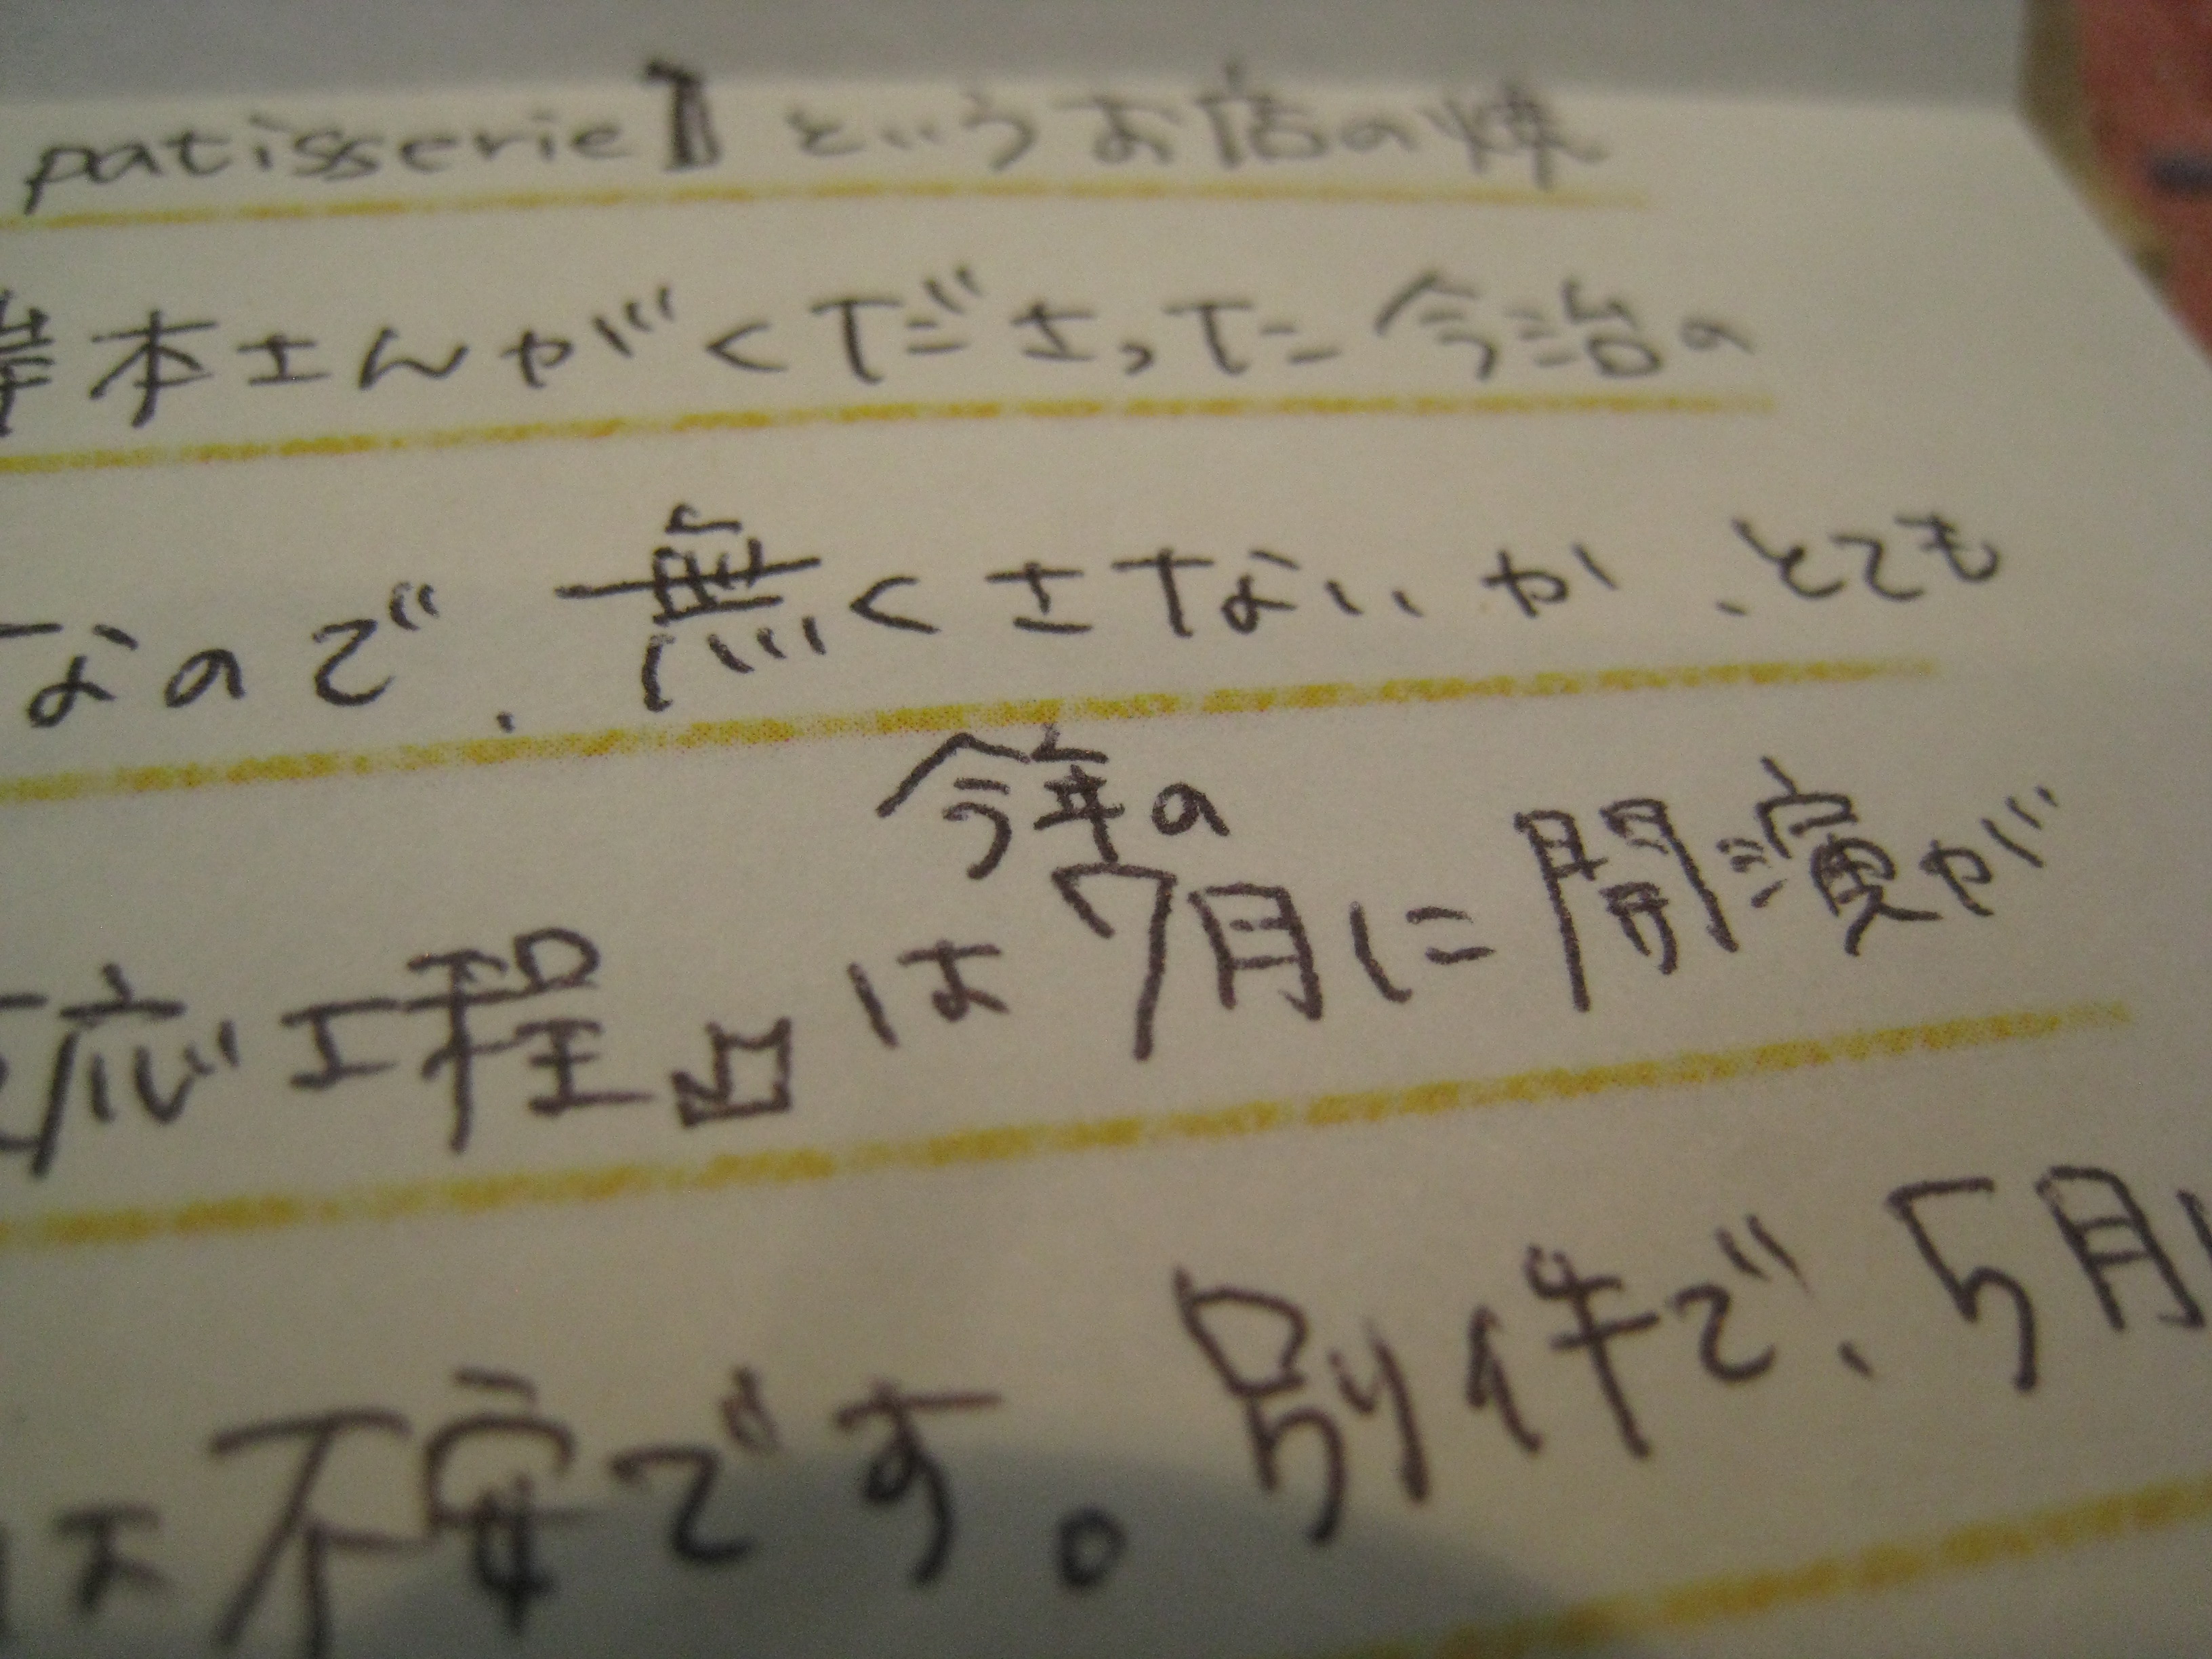 patisserie】というお店の焼
岸本さんがくださった今治の
なので、無くさないか、とても
今年の
反応工程』は7月に開演が
は不安です。別件で、5月